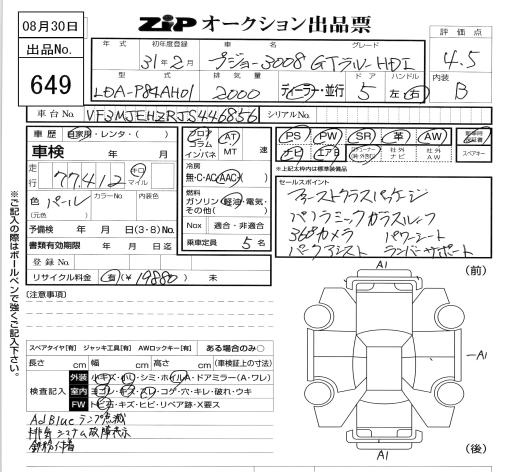 08月30日
ZIP オークション出品票
出品No.
649
年式
初年度登録 31年2月
車名 プジョー3008
グレード GTラルーHDI
評価点 4.5
型式 LDA-P84AH01
排気量 2000
ディーラー・並行
ドア 5
ハンドル 左・右
内装 B
車台No. VF3MJEHZRJS446856
シリアルNo.
車歴 自家用・レンタ・( )
車検 年 月
走行 77,412 キロ マイル
色 パール (元色)
カラーNo.
内装色
予備検 年 月 日(3・8)No.
書類有効期限 年 月 日迄
登録No.
リサイクル料金 有(¥19880) 未
フロア コラム インパネ
AT MT 速
冷房 無・C・AC・AAC
燃料 ガソリン・軽油・電気・その他( )
Nox 適合・非適合
乗車定員 5 名
PS PW SR 革 AW
ナビ エアB
社外ナビ
社外AW
スペアキー
*上記太枠内は標準装備品
セールスポイント
ファーストクラスパッケージ
パノラミックガラスルーフ
360カメラ パワーシート
パークアシスト ランバーサポート
※ご記入の際はボールペンで強くご記入下さい。
(注意事項)
スペアタイヤ[有] ジャッキ工具[有] AWロックキー[有] ある場合のみ〇
長さ cm 幅 cm 高さ cm (車検証上の寸法)
検査記入
外装 小キズ・小凹・シミ・ホイルA・ドアミラー(A・ワレ)
室内 ヨゴレ・キズ・スレ・コゲ・穴・キレ・破れ・ウキ
FW トビ石・キズ・ヒビ・リペア跡・X要ス
AdBlueランプ点滅
排気システム故障表示
鉄粉付着
A1
(前)
A1
A1
(後)